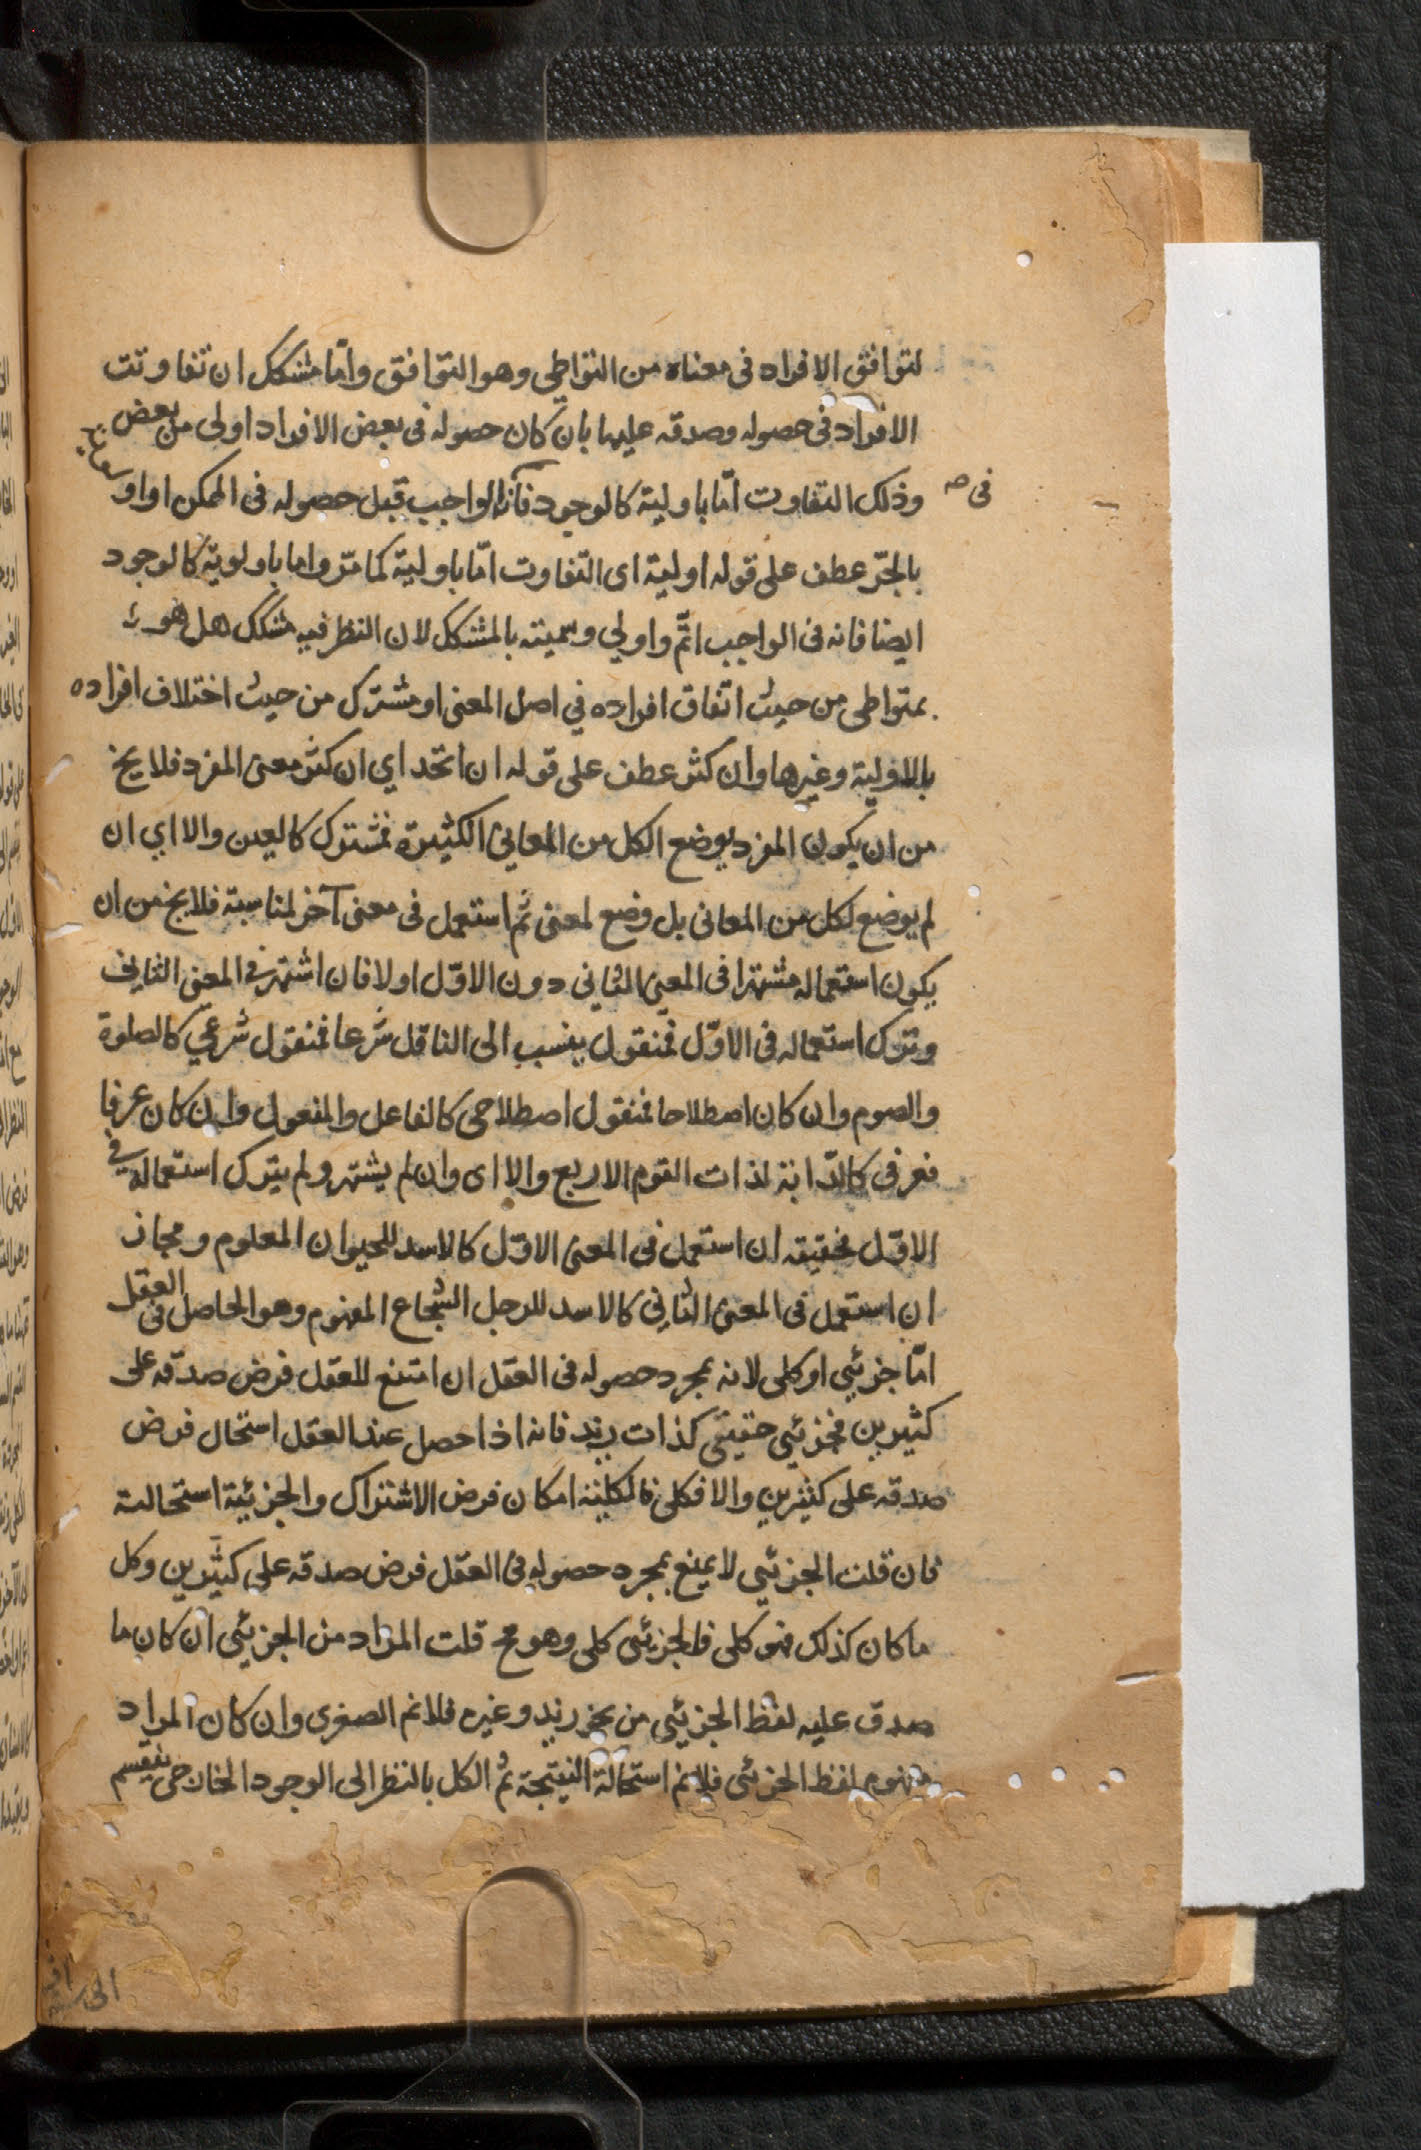 لتوافق الافراد فى معناه من التواطى وهو التوافق وامّا مشكك ان تفاوتت
الافراد فى حصوله وصدقه عليها بان كان حصوله فى بعض الافراد اولى من بعض
فى صح
وذلك التفاوت امّا باولية كالوجود فانه الواجب قبل حصوله فى الممكن او اولوية
بالجرّ عطف على قوله اولية اى التفاوت امّا باولية كما مرّ واما باولوية كالوجود
ايضا فانه فى الواجب اتمّ واولي وسميته بالمشكك لان النظر فيه مشكك هل هو
متواطى من حيث اتفاق افراده في اصل المعنى او مشترك من حيث اختلاف افراده
بالاولية وغيرها وان كثر عطف على قوله ان اتحد اي ان كثر معنى المفرد فلا يخ
من ان يكون المفرد يوضع الكل من المعاني الكثيرة فمشترك كالعين والا اي ان
لم يوضع لكل من المعانى بل وضع لمعنى ثم استعمل فى معنى آخر لمناسبة فلا يخ من ان
يكون استعماله مشتهرا فى المعنى الثاني دون الاوّل اولا فان اشتهر فى المعنى الثانى
وترك استعماله فى الاوّل فمنقول ينسب الى الناقل شرعا فمنقول شرعي كالصلوة
والصوم وان كان اصطلاحا فمنقول اصطلاحى كالفاعل والمفعول وان كان عرفا
فعرفى كالدّابة لذات القوم الاربع والا اى وان لم يشتهر ولم يترك استعماله فى
الاوّل فحقيقه ان استعمل فى المعنى الاوّل كالاسد للحيوان المعلوم ومجاز
ان استعمل فى المعنى الثانى كالاسد للرجل الشجاع المفهوم وهو الحاصل فى العقل
امّا جزئي او كلى لانه بمجرد حصوله فى العقل ان امتنع للعقل فرض صدقه على
كثيرين فجزئي حقيقى كذات زيد فانه اذا حصل عند العقل استحال فرض
صدقه على كثيرين والا فكلى فالكلية امكان فرض الاشتراك والجزئية استحالته
فان قلت الجزئي لا يمنع بمجرد حصوله فى العقل فرض صدقه على كثيرين وكل
ما كان كذلك فهو كلى فالجزئى كلى وهو مح قلت المراد من الجزئي ان كان ما
صدق عليه لفظ الجزئي من نحو زيد وغيره فلانم الصغرى وان كان المراد
مفهوم لفظ الجزئى فلانم استحالة النتيجة ثم الكل بالنظر الى الوجود الخارجى ينقسم
الى